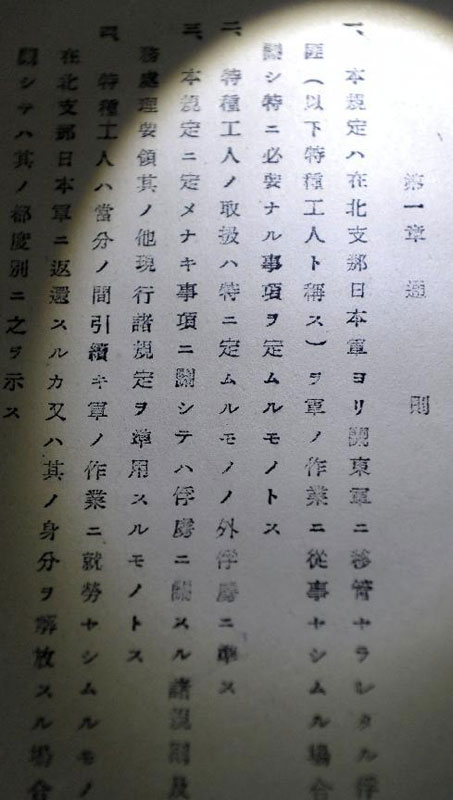 第一章 通則
一、本規定ハ在北支那日本軍ヨリ關東軍ニ移管セラレタル俘
虜（以下特種工人ト稱ス）ヲ軍ノ作業ニ從事セシムル場合
ニ關シ特ニ必要ナル事項ヲ定ムルモノトス
二、特種工人ノ取扱ハ特ニ定ムルモノノ外俘虜ニ準ス
三、本規定ニ定メナキ事項ニ關シテハ俘虜ニ關スル諸規則及
務處理要領其ノ他現行諸規定ヲ準用スルモノトス
四、特種工人ハ當分ノ間引續キ軍ノ作業ニ就勞セシムルモノ
在北支那日本軍ニ返還スルカ又ハ其ノ身分ヲ解放スル場合
關シテハ其ノ都度別ニ之ヲ示ス